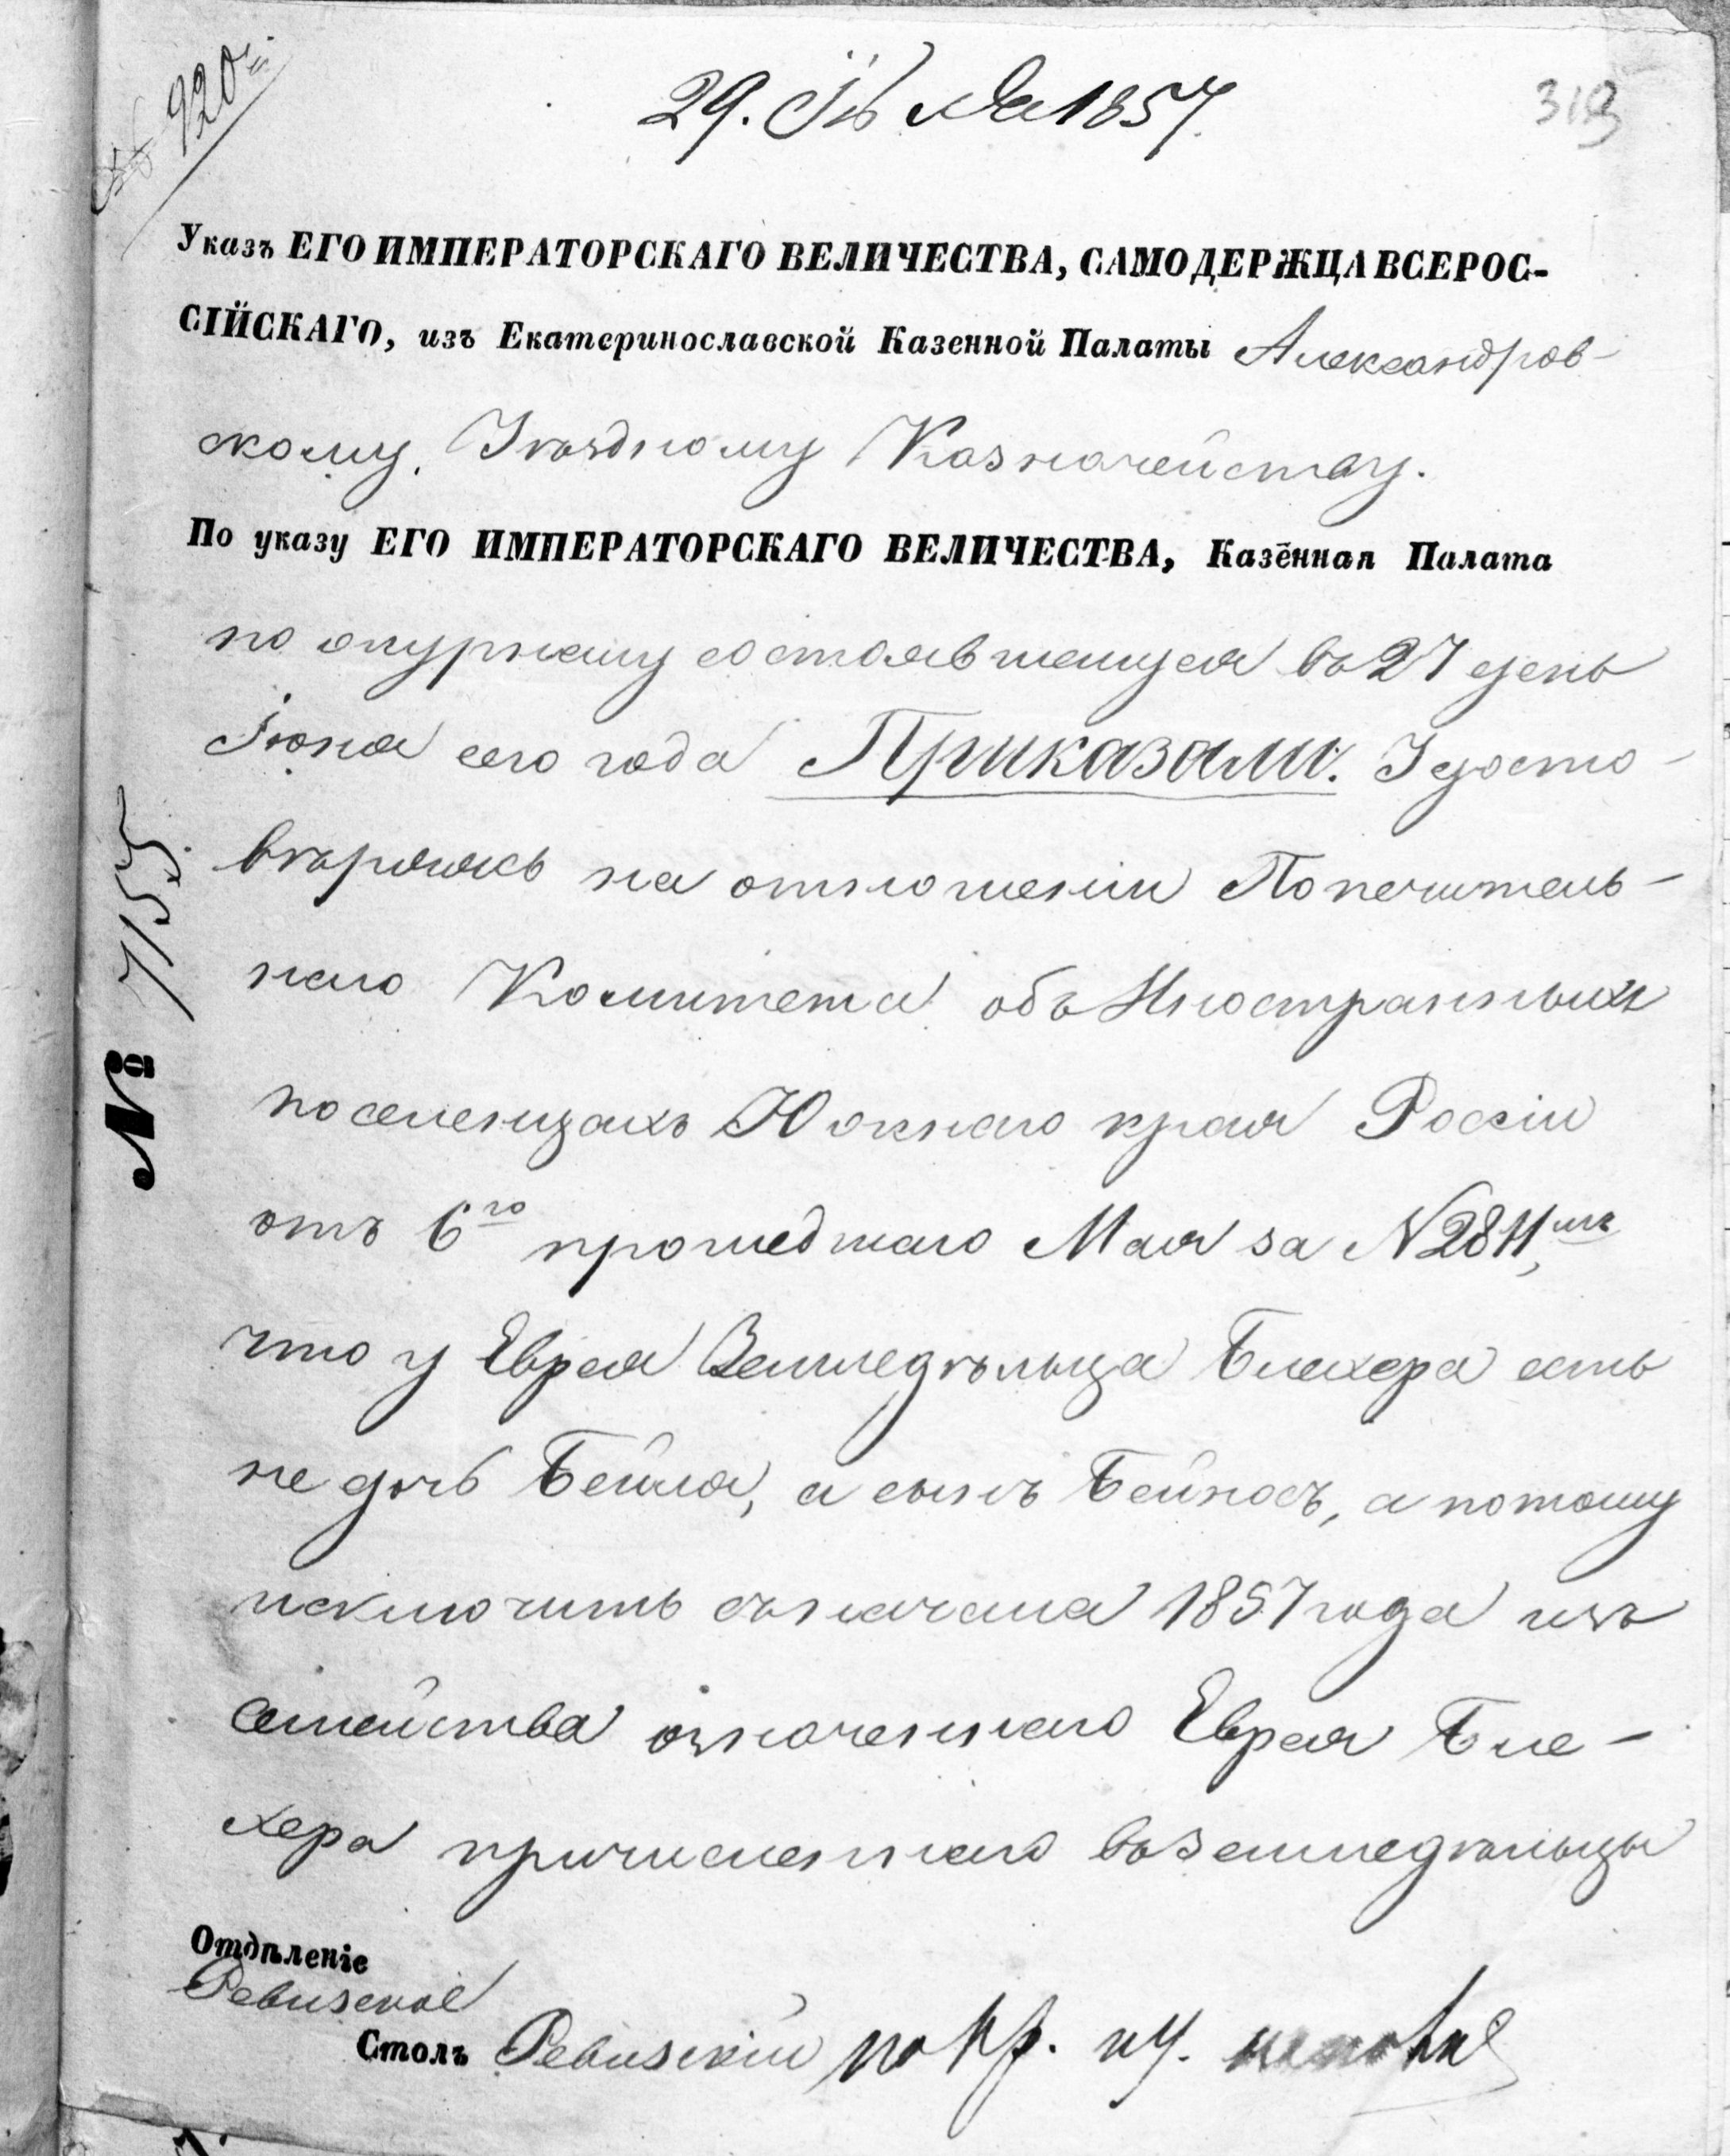 920
29. Іюня 1857
313
Указъ ЕГО ИМПЕРАТОРСКАГО ВЕЛИЧЕСТВА, САМОДЕРЖЦА ВСЕРОС-
СІЙСКАГО, изъ Екатеринославской Казенной Палаты Александров-
скому Уѣздному Казначейству.
По указу ЕГО ИМПЕРАТОРСКАГО ВЕЛИЧЕСТВА, Казенная Палата
по журналу состоявшемуся въ 27 день
Іюня сего года Приказали: Удосто-
вѣрясь на отношеніи Попечитель-
наго Комитета объ Иностранныхъ
поселенцахъ Южнаго края Россіи
отъ 6го прошедшаго Мая за N 2811,
что у Еврея Земледѣльца Блехера есть
не дочь Бейла, а сынъ Бейносъ, а потому
исключить съ начала 1857 года изъ
семейства означеннаго Еврея Бле-
хера причисленнаго въ земледѣльцы
№ 7155
Отдѣленіе
Ревизское
Столъ Ревизскій